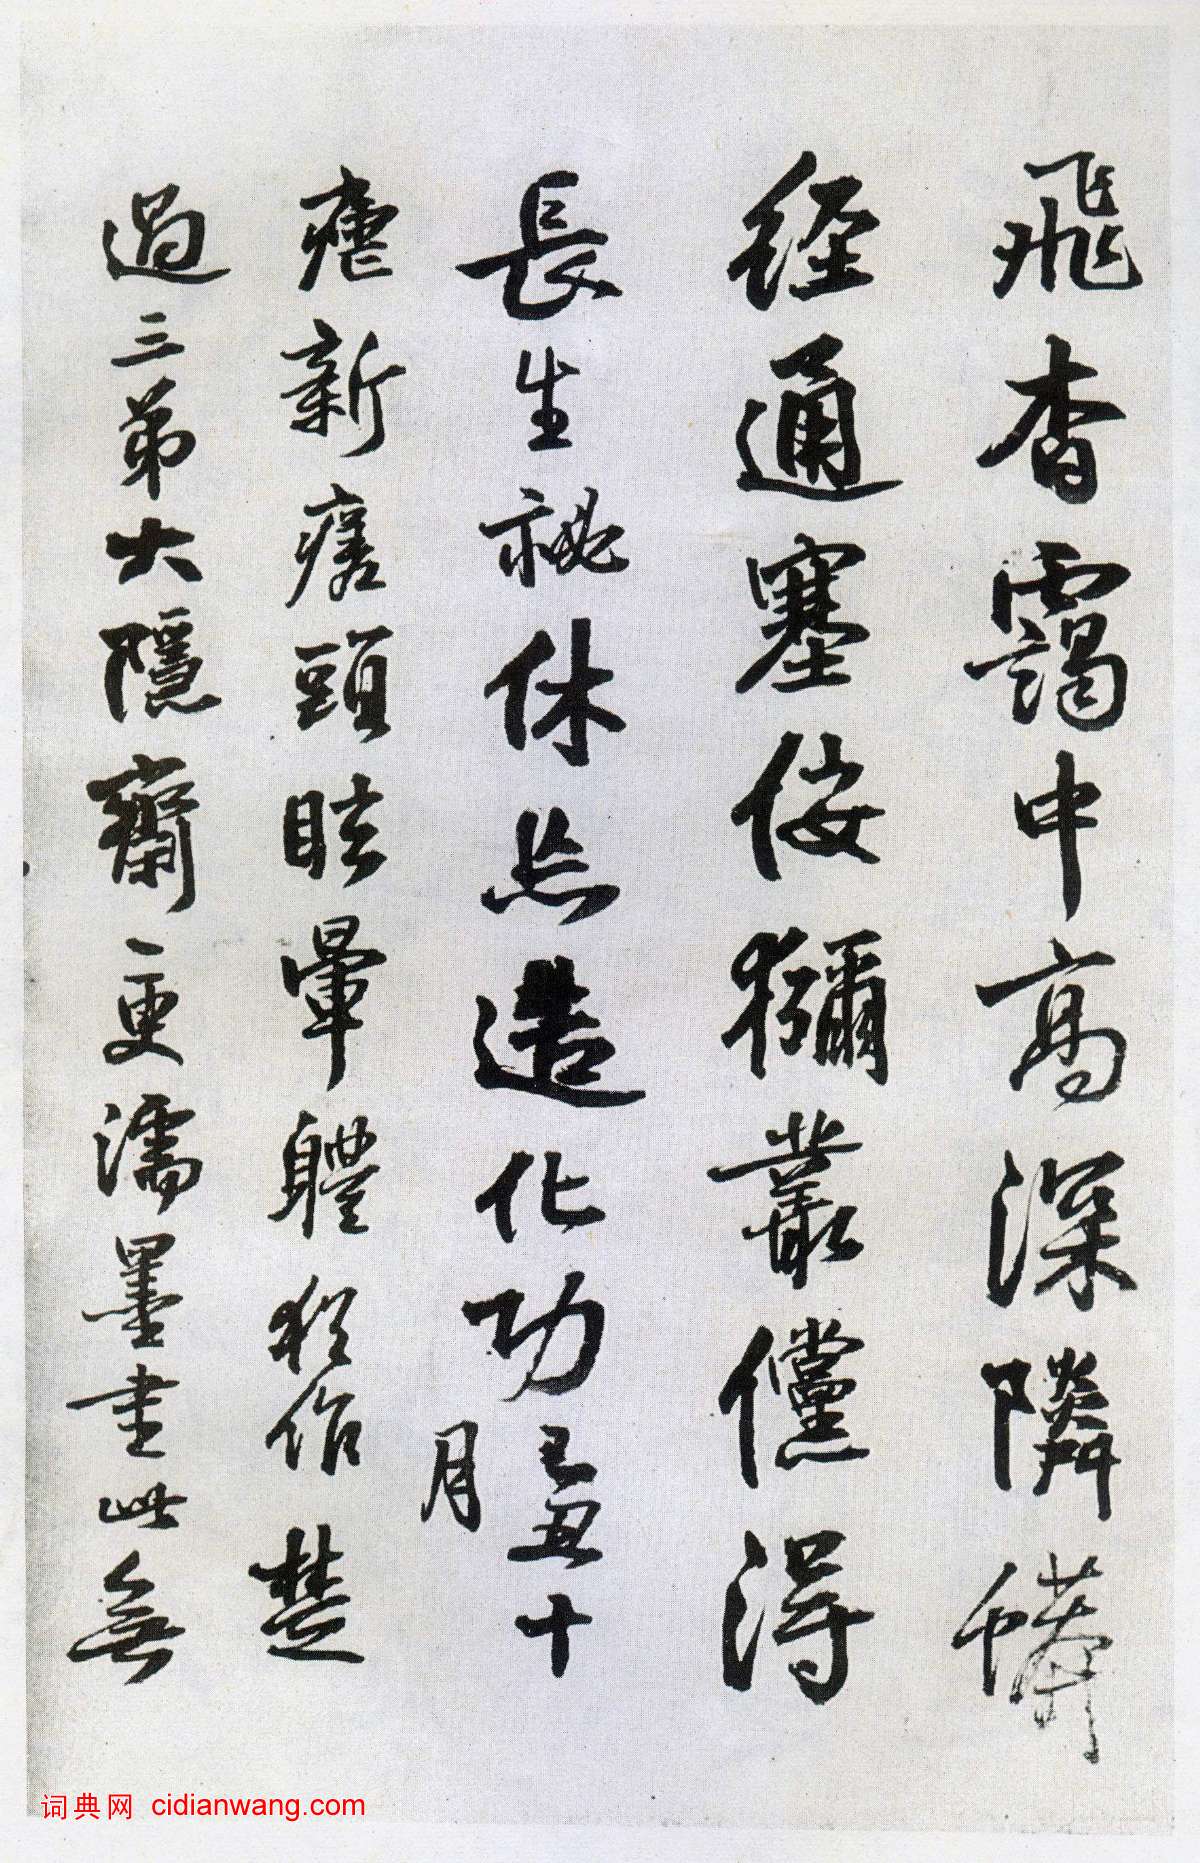 飛杳靄中高深隣蟒
經通塞佞獼叢儻得
長生祕休忘造化功己丑十
月
瘧新瘥頭眩暈體猶作楚
過三弟大隱齋更濡墨書此無
词典网 cidianwang.com